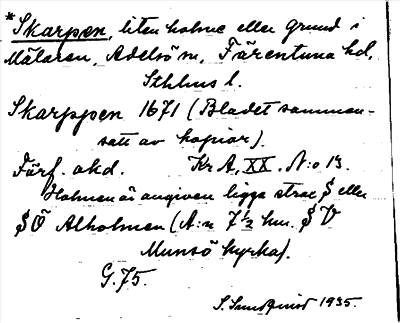 *Skarpen, liten holme eller grund i
Mälaren, Adelsö sn, Färentuna hd,
Sthlms l.
Skarppen 1671 (Bladet samman-
satt av kopior).
Färf. okd. Kr A, XX. N:o 13.
Holmen är angiven ligga strax S eller
S Ö Alholmen (A:n 7½ hm. S V
Munsö kyrka).
G. 75.
S. Sundquist 1935.